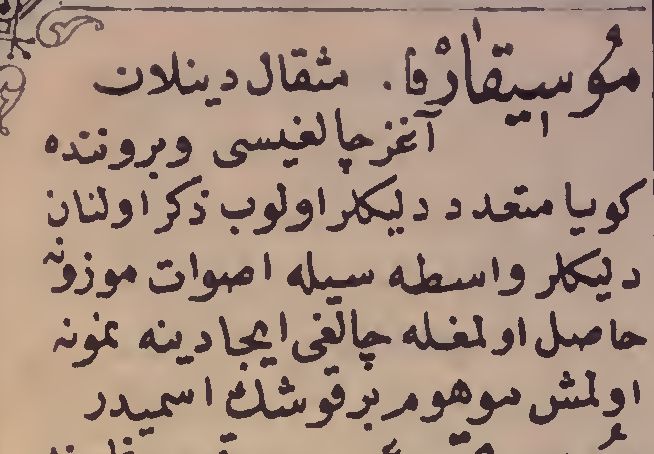 مُوسِیقَارْ فا. مثقال دینلان
آغز چالغیسی وبروننده
کویا متعدد دلیکلر اولوب ذکر اولنان
دلیکلر واسطه سیله اصوات موزونه
حاصل اولمغله چالغی ایجادینه نمونه
اولمش موهوم بر قوشك اسمیدر